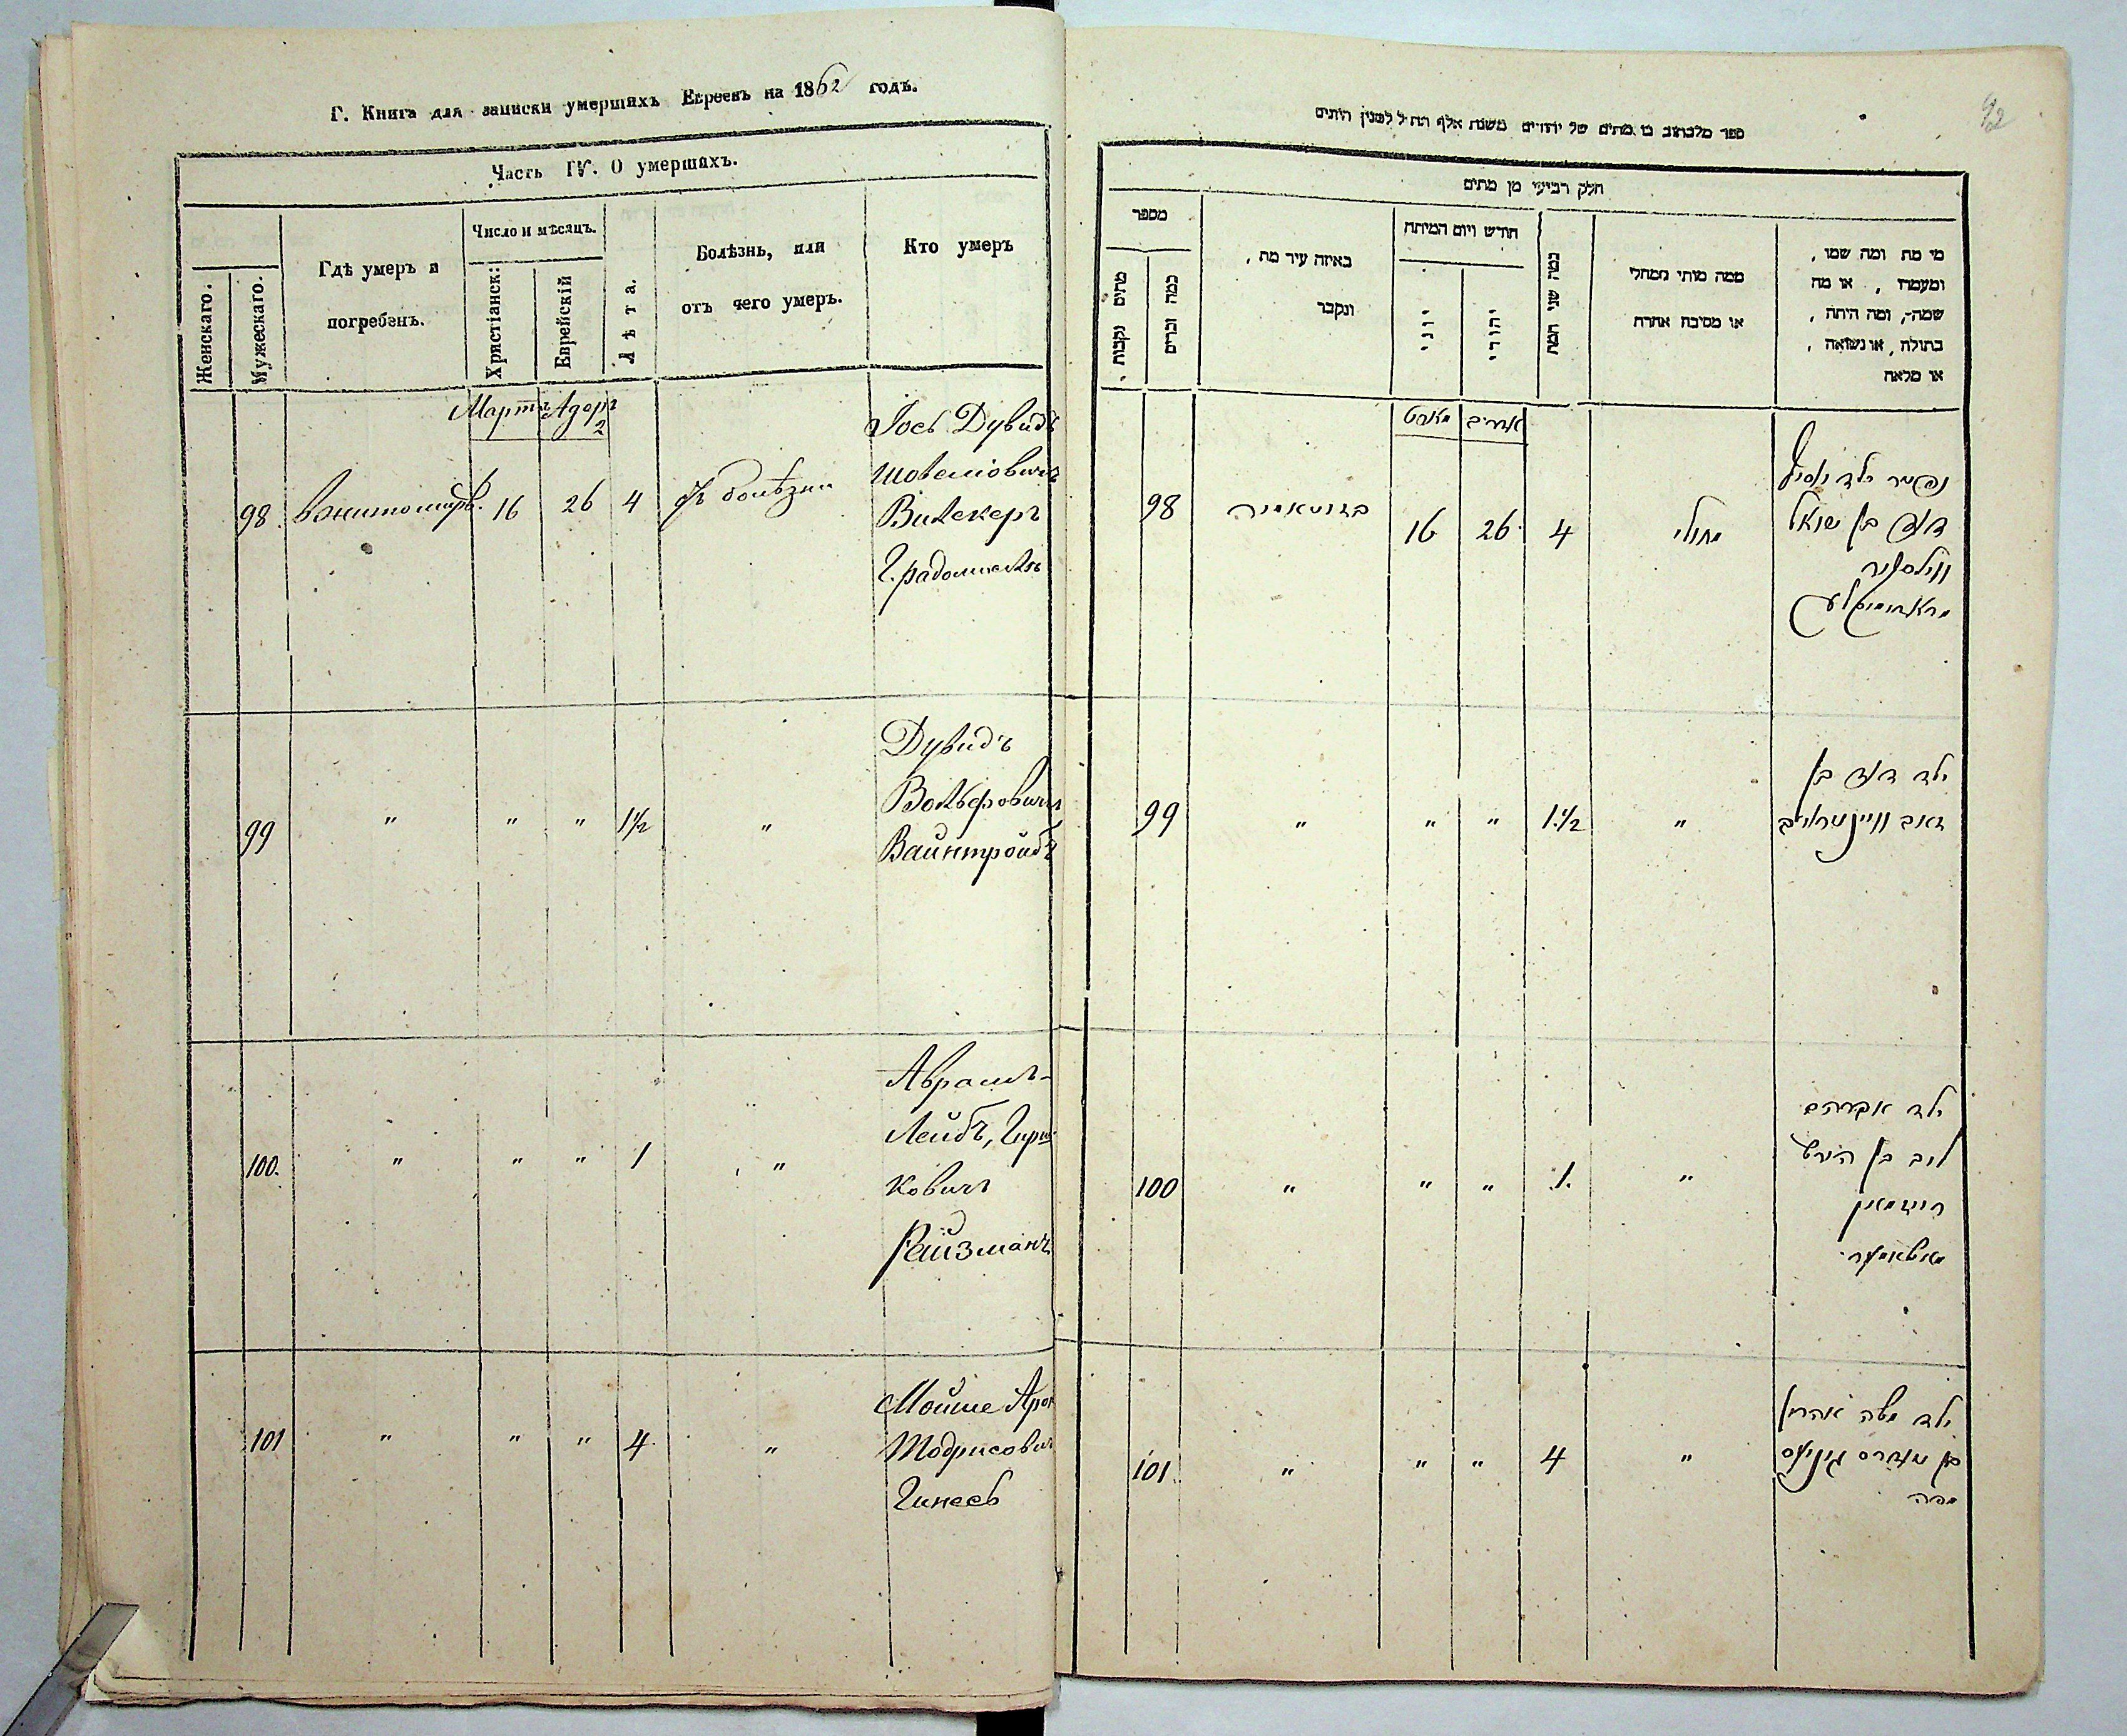 Г. Книга для записки умершихъ Евреевъ на 1862 годъ.
Часть IV. О умершихъ.
Женскаго.
Мужескаго.
Гдѣ умеръ и
погребенъ.
Число и мѣсяцъ.
Христіанск:
Еврейскій
Лѣта.
Болѣзнь, или
отъ чего умеръ.
Кто умеръ
Мартъ Адоръ
2
98 Вжитомирѣ. 16 26 4 болѣзни
Іось Дувидъ
Шовеліовичъ
Вилскеръ
Г. радомысль
99 " " " 1 1/2 "
Дувидъ
Вольфовичъ
Вайнтройбъ
100. " " " 1 "
Аврамъ-
Лейбъ, Гирш
ковичъ
Райзманъ
101 " " " 4 "
Мойше Арон
Модрисович
Гинесъ
92
חלק רביעי מן מתים
מספר
מתים נקבות
כמה זכרים
באיזה עיר מת,
ונקבר
חודש ויום המיתה
יוני
יהודי
כמה שני המת
ממה מותי ממחלי
או מסיבה אחרת
מי מת ומה שמו,
ומעמדו, או מה
שמה, ומה היתה,
בתולה, או נשואה,
או מלאה
מארט
98 16 26 4 מחולי
נפטר ילד יוסף
דוד בן שואל
ווילסקיר
99 " " " 1 1/2 "
ילד דוד בן
זאב וויינטרויב
100 " " " 1. "
ילד אברהם
ליב בן הירש
רייזמאן
101. " " " 4 "
ילד משה אהרן